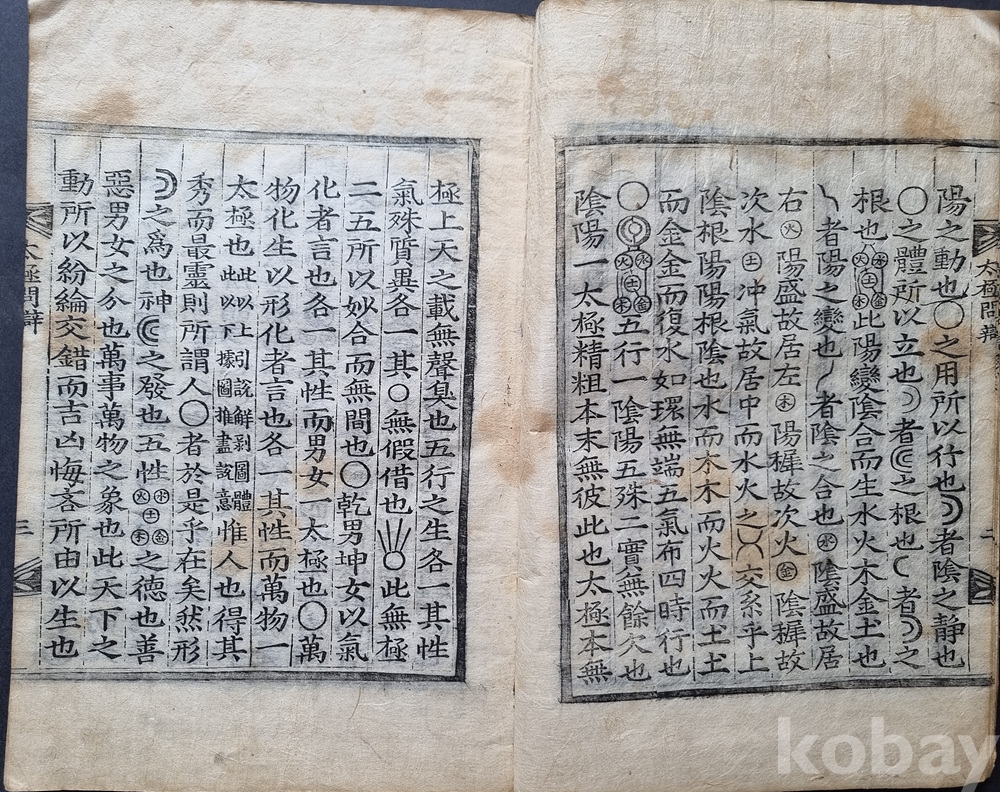 陽之動也○之用所以行也☽者陰之靜也
○之體所以立也☽者☾之根也☾者☽之
根也水火土木金此陽變陰合而生水火木金土也
㇏者陽之變也㇒者陰之合也水陰盛故居
右火陽盛故居左木陽穉故次火金陰穉故
次水土冲氣故居中而水火之交系乎上
陰根陽陽根陰也水而木木而火火而土土
而金金而復水如環無端五氣布四時行也
○水火土木金五行一陰陽五殊二實無餘欠也
陰陽一太極精粗本末無彼此也太極本無
太極問辨
二
極上天之載無聲臭也五行之生各一其性
氣殊質異各一其○無假借也此無極
二五所以妙合而無間也○乾男坤女以氣
化者言也各一其性而男女一太極也○萬
物化生以形化者言也各一其性而萬物一
太極也此以上引說解剥圖體此以下據圖推盡說意惟人也得其
秀而最靈則所謂人○者於是乎在矣然形
☽之爲也神☾之發也五性水火土木金之德也善
惡男女之分也萬事萬物之象也此天下之
動所以紛綸交錯而吉凶悔吝所由以生也
太極問辨
三
kobay